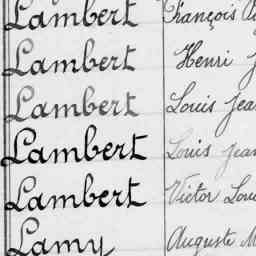 Lambert François
Lambert Henri
Lambert Louis Jean
Lambert Louis Jean
Lambert Victor Louis
Lamy Auguste